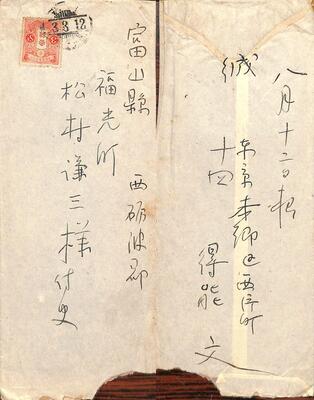 富山縣 西砺波郡
福光町
松村謙三様
八月十二日
緘
東京本郷区西片町
十四
得能 文